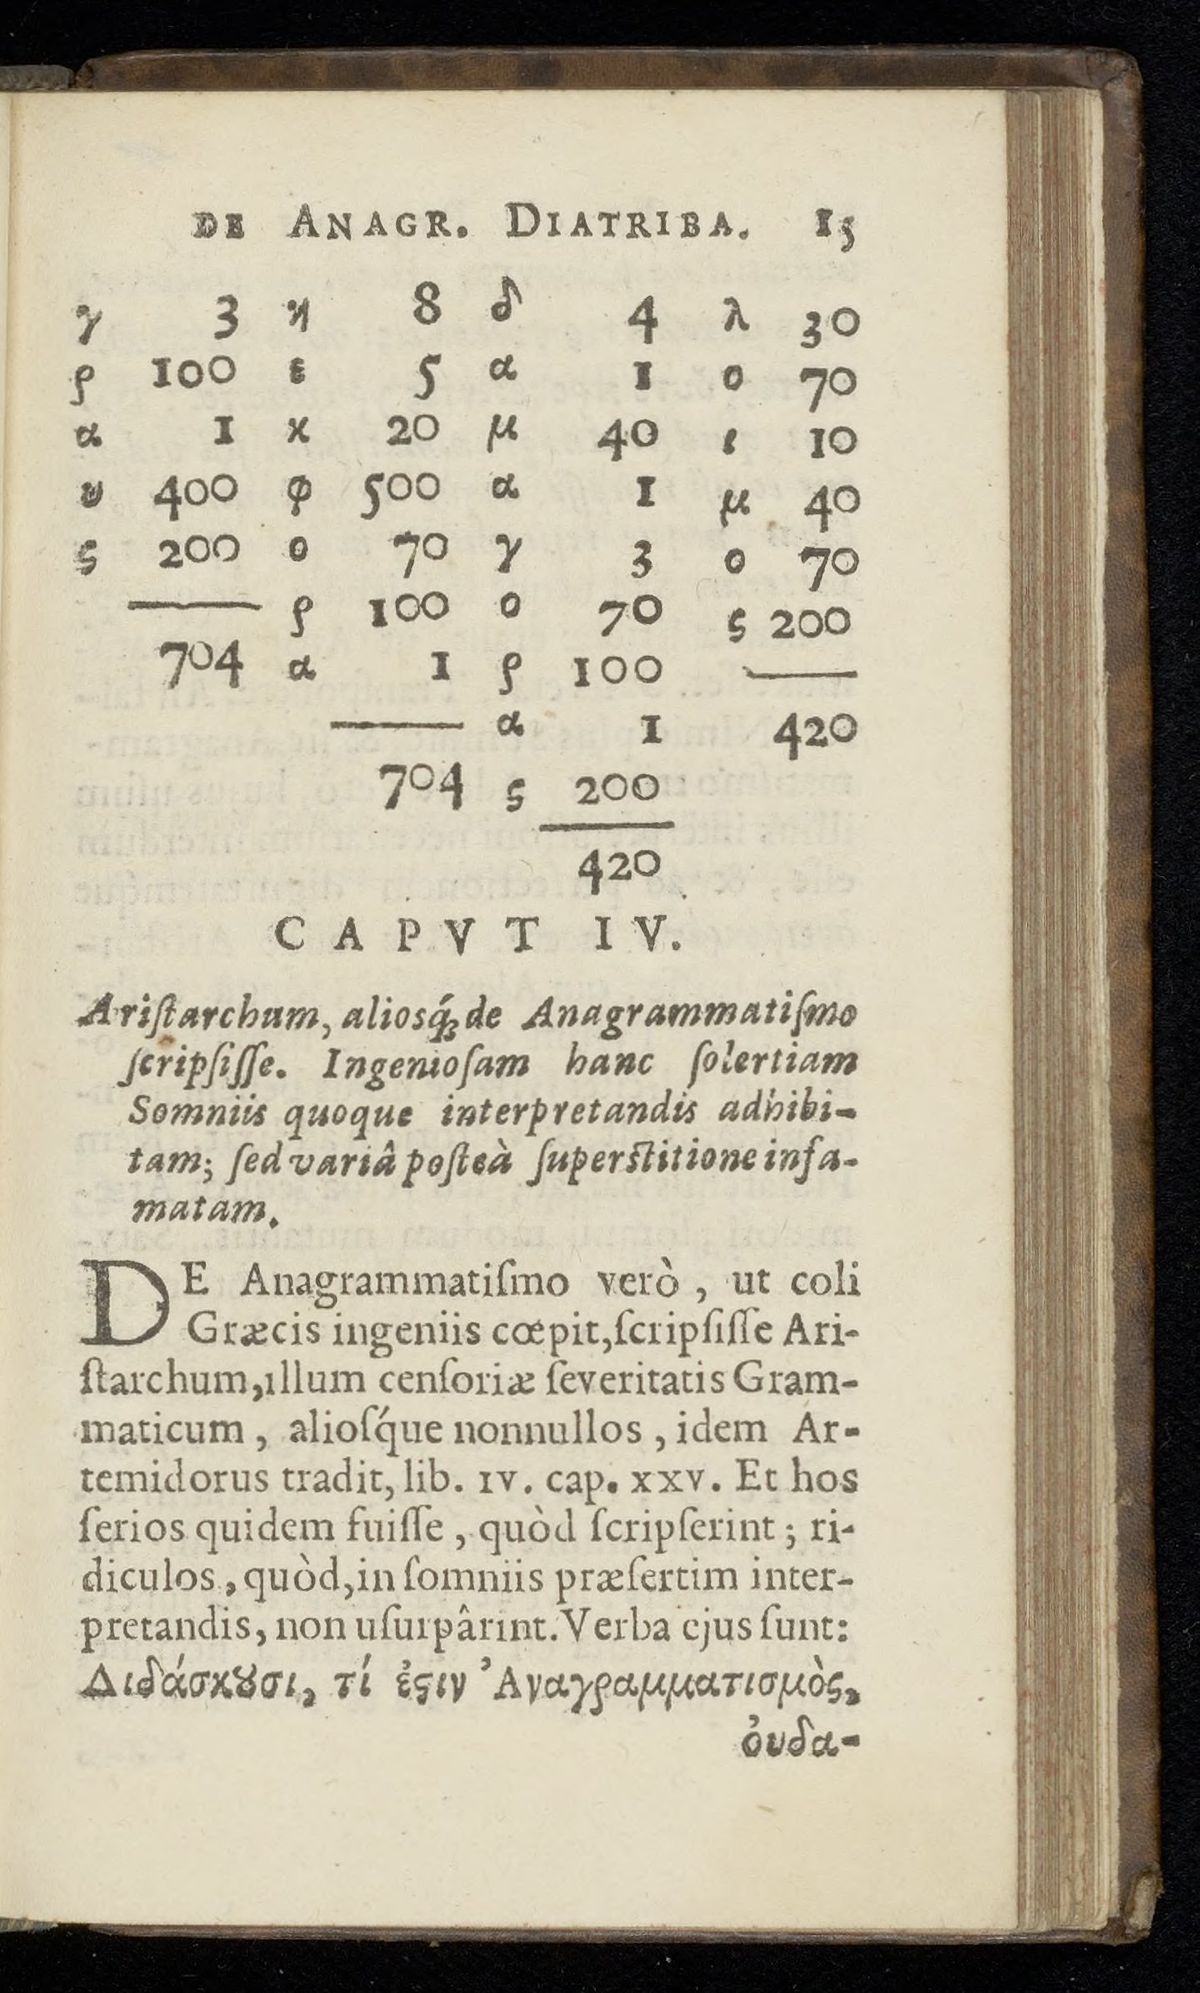 DE ANAGR. DIATRIBA. 15
γ 3 η 8 δ 4 λ 30
ρ 100 ε 5 α 1 ο 70
α 1 κ 20 μ 40 ι 10
υ 400 φ 500 α 1 μ 40
ς 200 ο 70 γ 3 ο 70
ρ 100 ο 70 ς 200
704 α 1 ρ 100
α 1 420
704 ς 200
420
CAPVT IV.
Ariſtarchum, aliosq́; de Anagrammatiſmo
ſcripſiſſe. Ingenioſam hanc ſolertiam
Somniis quoque interpretandis adhibi-
tam; ſed variâ poſteà ſuperſtitione infa-
matam.
DE Anagrammatiſmo verò, ut coli
Græcis ingeniis cœpit, ſcripſiſſe Ari-
ſtarchum, illum cenſoriæ ſeveritatis Gram-
maticum, alioſq́ue nonnullos, idem Ar-
temidorus tradit, lib. IV. cap. XXV. Et hos
ſerios quidem fuiſſe, quòd ſcripſerint; ri-
diculos, quòd, in ſomniis præſertim inter-
pretandis, non uſurpârint. Verba ejus ſunt:
Διδάσκȣσι, τί ἐϛιν Ἀναγραμματισμὸς,
ὀυδα-